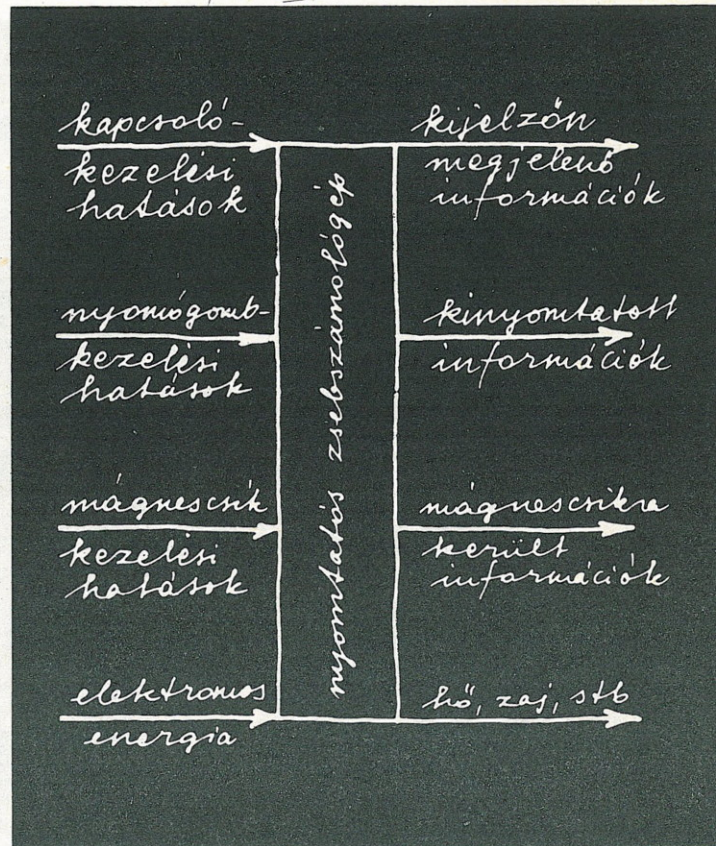 kapcsoló-
kezelési
hatások
nyomógomb-
kezelési
hatások
mágnescsík
kezelési
hatások
elektromos
energia
nyomtatós zsebszámológép
kijelzőn
megjelenő
információk
kinyomtatott
információk
mágnescsikra
került
információk
hő, zaj, stb